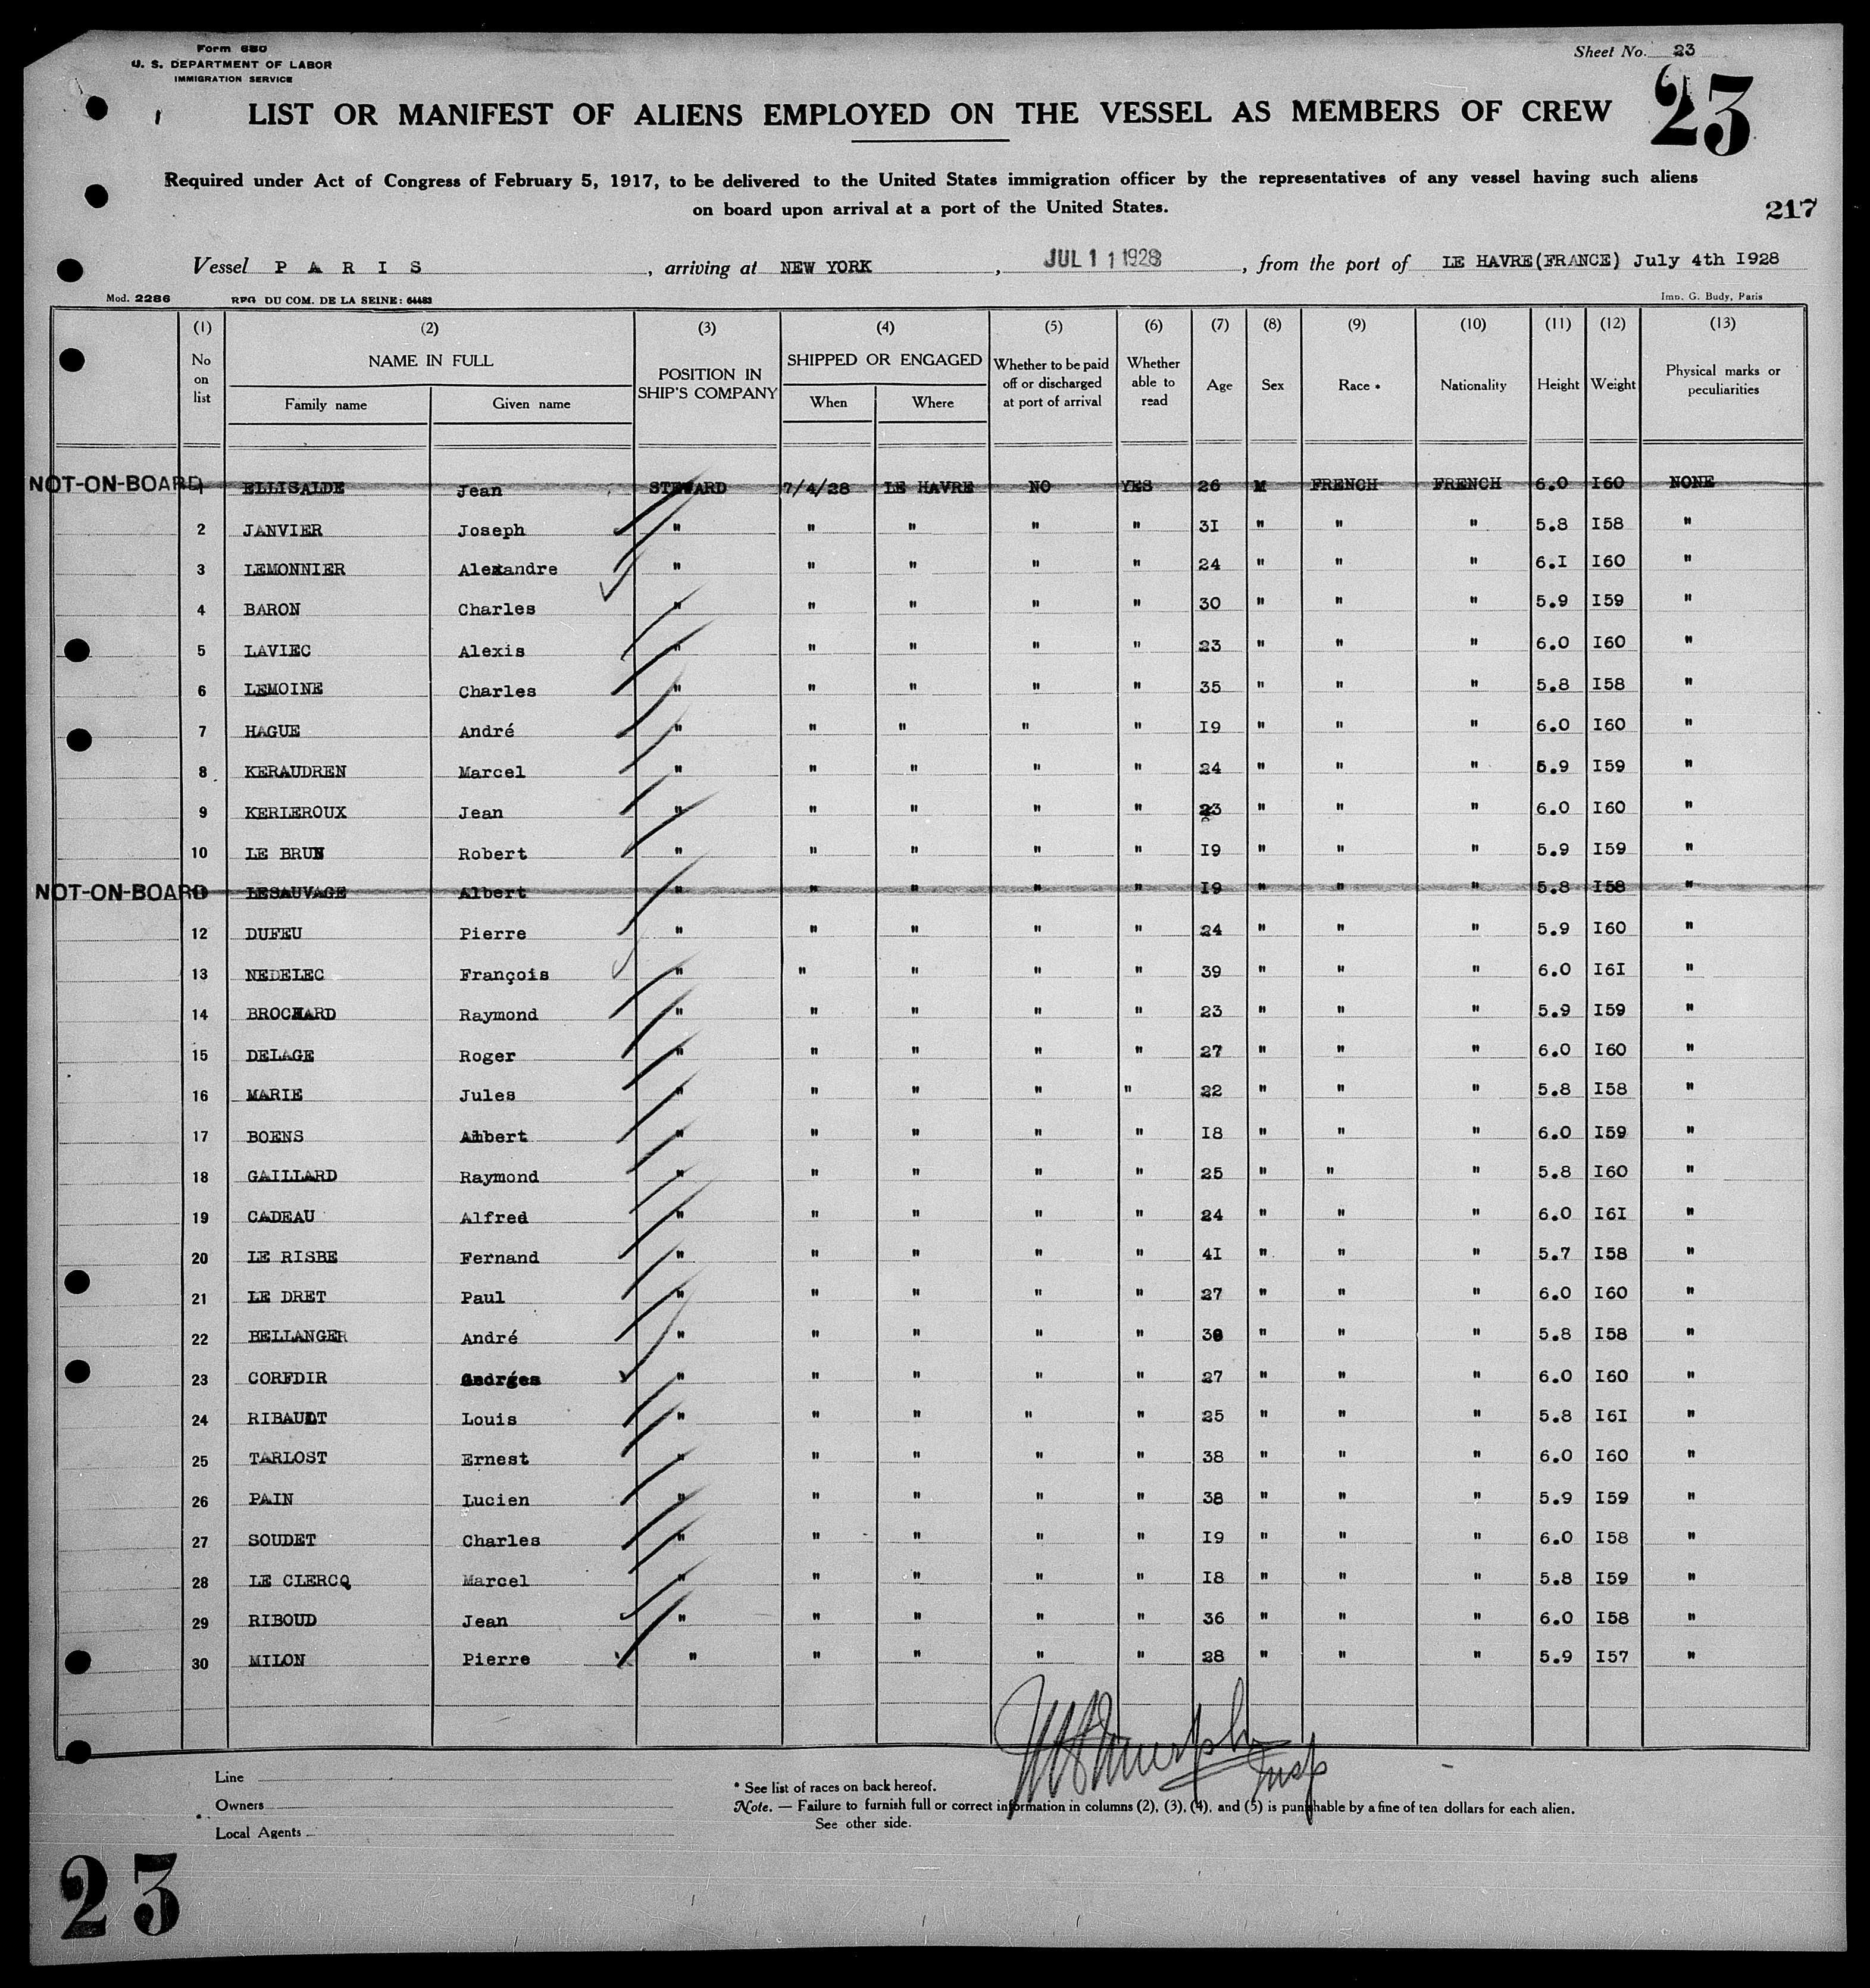 Form 680
U. S. DEPARTMENT OF LABOR
IMMIGRATION SERVICE
Sheet No. 23
23
LIST OR MANIFEST OF ALIENS EMPLOYED ON THE VESSEL AS MEMBERS OF CREW
Required under Act of Congress of February 5, 1917, to be delivered to the United States immigration officer by the representatives of any vessel having such aliens
on board upon arrival at a port of the United States.
217
Vessel P A R I S , arriving at NEW YORK , JUL 11 1928 , from the port of LE HAVRE(FRANCE) July 4th I928
Mod. 2286 REG. DU COM. DE LA SEINE: 64483 Imp. G. Budy, Paris
(1) (2) (3) (4) (5) (6) (7) (8) (9) (10) (11) (12) (13)
No on list NAME IN FULL Family name Given name POSITION IN SHIP'S COMPANY SHIPPED OR ENGAGED When Where Whether to be paid off or discharged at port of arrival Whether able to read Age Sex Race * Nationality Height Weight Physical marks or peculiarities
NOT-ON-BOARD 1 ELLISALDE Jean STEWARD 7/4/28 LE HAVRE NO YES 26 M FRENCH FRENCH 6.0 I60 NONE
2 JANVIER Joseph " " " " " 3I " " " 5.8 I58 "
3 LEMONNIER Alexandre " " " " " 24 " " " 6.I I60 "
4 BARON Charles " " " " " 30 " " " 5.9 I59 "
5 LAVIEC Alexis " " " " " 23 " " " 6.0 I60 "
6 LEMOINE Charles " " " " " 35 " " " 5.8 I58 "
7 HAGUE André " " " " " I9 " " " 6.0 I60 "
8 KERAUDREN Marcel " " " " " 24 " " " 5.9 I59 "
9 KERLEROUX Jean " " " " " 23 " " " 6.0 I60 "
10 LE BRUN Robert " " " " " I9 " " " 5.9 I59 "
NOT-ON-BOARD 11 LESAUVAGE Albert " " " " " I9 " " " 5.8 I58 "
12 DUFEU Pierre " " " " " 24 " " " 5.9 I60 "
13 NEDELEC François " " " " " 39 " " " 6.0 I6I "
14 BROCHARD Raymond " " " " " 23 " " " 5.9 I59 "
15 DELAGE Roger " " " " " 27 " " " 6.0 I60 "
16 MARIE Jules " " " " " 22 " " " 5.8 I58 "
17 BOENS Albert " " " " " I8 " " " 6.0 I59 "
18 GAILLARD Raymond " " " " " 25 " " " 5.8 I60 "
19 CADEAU Alfred " " " " " 24 " " " 6.0 I6I "
20 LE RISBE Fernand " " " " " 4I " " " 5.7 I58 "
21 LE DRET Paul " " " " " 27 " " " 6.0 I60 "
22 BELLANGER André " " " " " " " " 5.8 I58 "
23 CORFDIR " " " " " 27 " " " 6.0 I60 "
24 RIBAULT Louis " " " " " 25 " " " 5.8 I6I "
25 TARLOST Ernest " " " " " 38 " " " 6.0 I60 "
26 PAIN Lucien " " " " " 38 " " " 5.9 I59 "
27 SOUDET Charles " " " " " I9 " " " 6.0 I58 "
28 LE CLERCQ Marcel " " " " " I8 " " " 5.8 I59 "
29 RIBOUD Jean " " " " " 36 " " " 6.0 I58 "
30 MILON Pierre " " " " " 28 " " " 5.9 I57 "
Insp
Line
Owners
Local Agents
* See list of races on back hereof.
Note. — Failure to furnish full or correct information in columns (2), (3), (4), and (5) is punishable by a fine of ten dollars for each alien.
See other side.
23